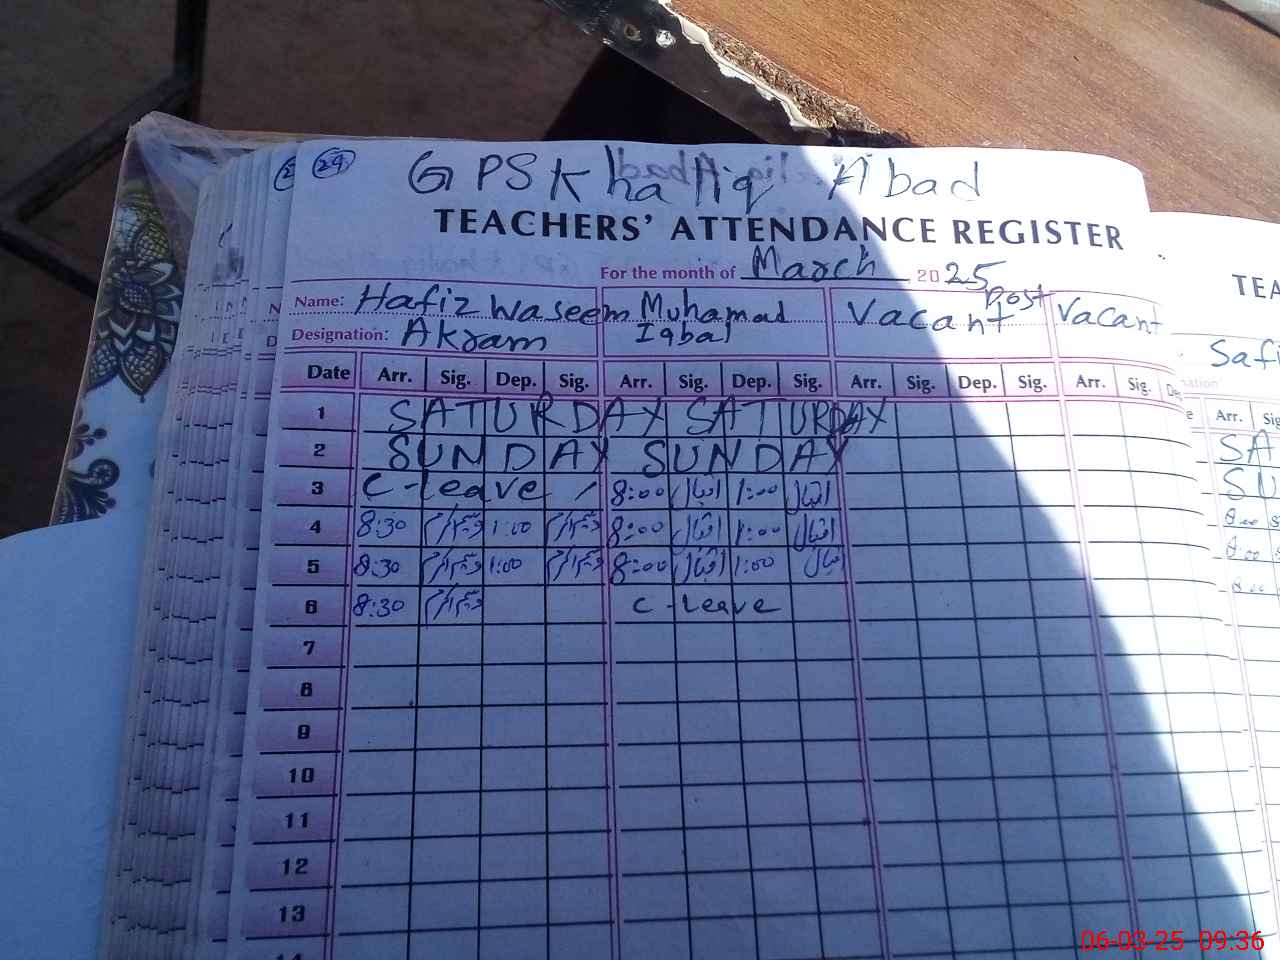 29
GPS Khaliq Abad
TEACHERS' ATTENDANCE REGISTER
For the month of March 2025
Name: Hafiz Waseem Muhamad Vacant Post Vacant
Designation: Akram Iqbal
Date Arr. Sig. Dep. Sig. Arr. Sig. Dep. Sig. Arr. Sig. Dep. Sig. Arr. Sig.
1 SATURDAY SATURDAY
2 SUNDAY SUNDAY
3 C-leave / 8:00 اقبال 1:00 اقبال
4 8:30 1:00 8:00 اقبال 1:00 اقبال
5 8:30 1:00 8:00 اقبال 1:00 اقبال
6 8:30 C-leave
7
8
9
10
11
12
13
14
TEA
Safi
Arr. Sig
SA
SU
8:00
8:00
8:00
06-03-25 09:36